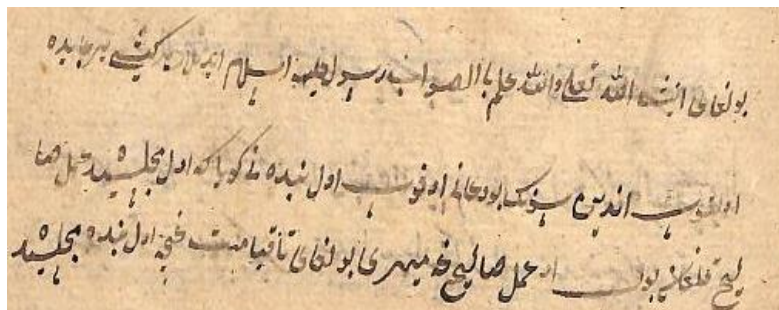 بولغای انشاء الله تعالی والله علم باالصواب رسول علیه السلام ایدیلار کیشی بیر جایده
اولتورسه اندین سونک بو دعانی اوقوسه اول بنده نی کویا که اول مجلسیده عمل صا
لیح قلغان بولسه اول عمل صالیح قه میهری بولغای تا قیامت غچه اول بنده مجلسیده